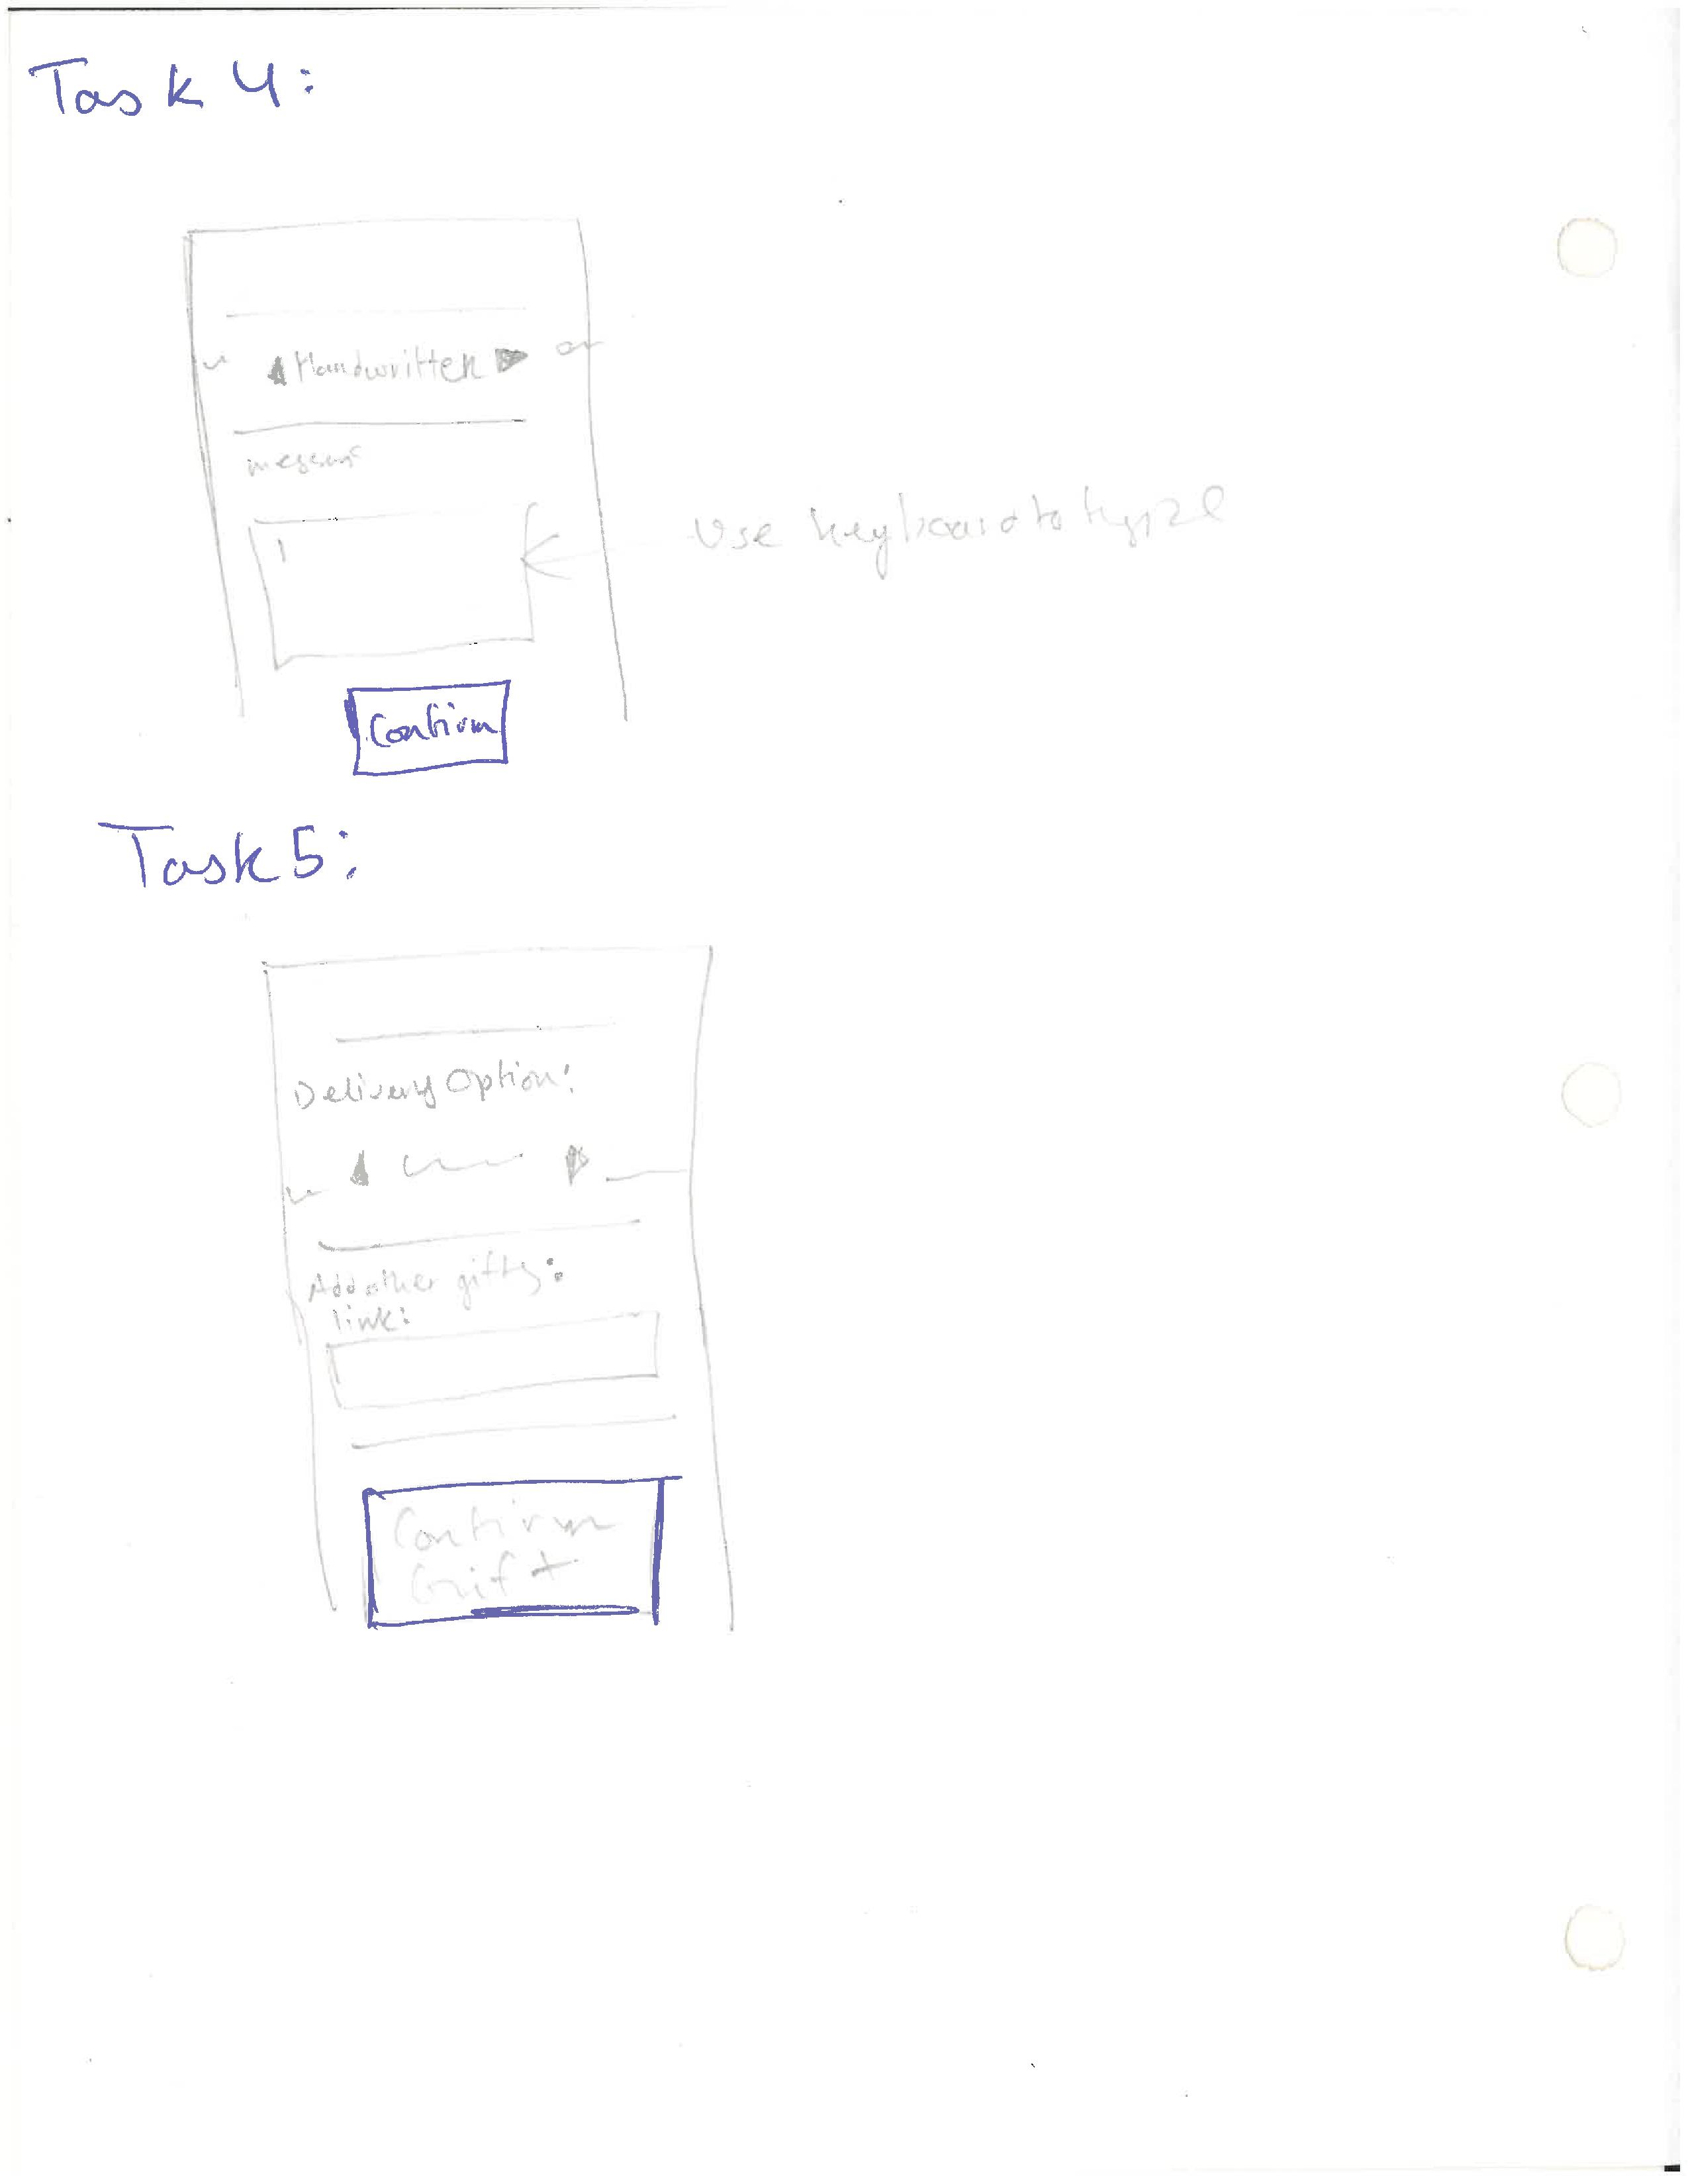 Task 4:
Handwritten
Use keyboard to type
Confirm
Task 5:
Delivery Option:
Add other gifts:
link:
Confirm
Gift